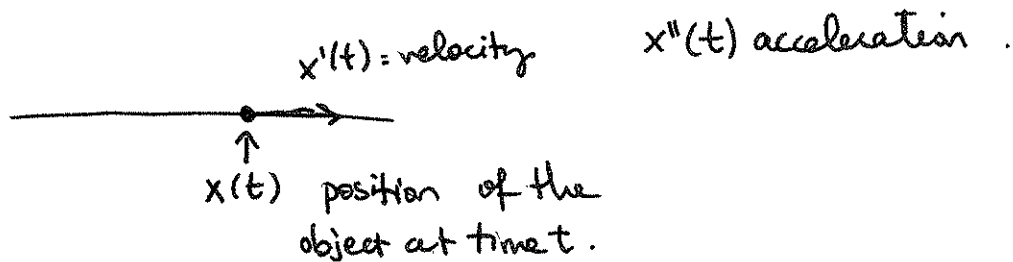 x'(t) = velocity
x''(t) acceleration .
x(t) position of the
object at time t .